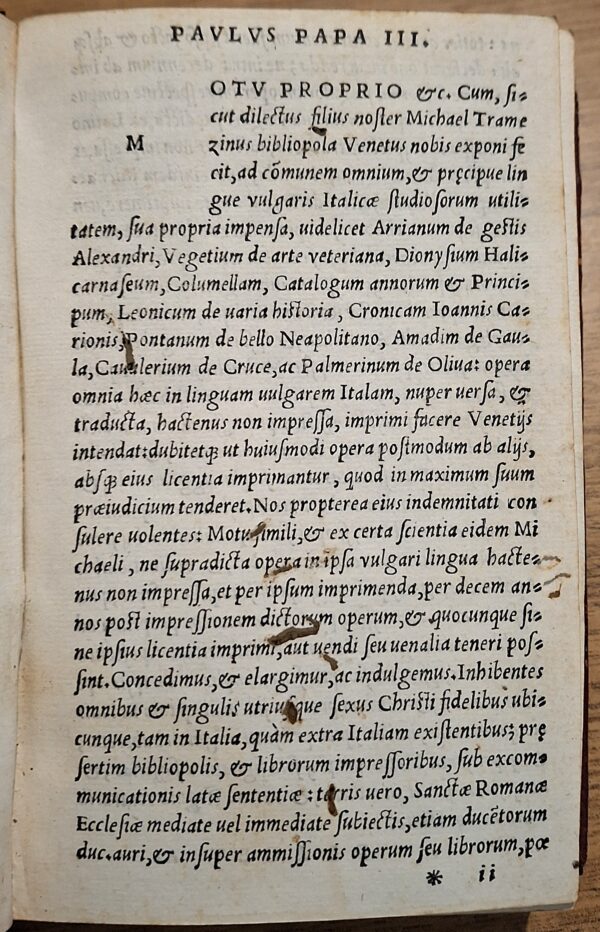 PAVLVS PAPA III.
M OTV PROPRIO &c. Cum, si-
cut dilectus filius noster Michael Trame
zinus bibliopola Venetus nobis exponi fe
cit, ad cõmunem omnium, & pręcipue lin
gue vulgaris Italicæ studiosorum utili-
tatem, sua propria impensa, uidelicet Arrianum de gestis
Alexandri, Vegetium de arte veteriana, Dionysium Hali-
carnaseum, Columellam, Catalogum annorum & Princi-
pum, Leonicum de uaria historia, Cronicam Ioannis Ca-
rionis, Pontanum de bello Neapolitano, Amadim de Gau-
la, Caualerium de Cruce, ac Palmerinum de Oliua: opera
omnia hæc in linguam uulgarem Italam, nuper uersa, &
traducta, hactenus non impressa, imprimi facere Venetijs
intendat: dubitetq; ut huiusmodi opera postmodum ab alijs,
absq; eius licentia imprimantur, quod in maximum suum
præiudicium tenderet. Nos propterea eius indemnitati con
sulere uolentes: Motu simili, & ex certa scientia eidem Mi
chaeli, ne supradicta opera in ipsa vulgari lingua hacte-
nus non impressa, et per ipsum imprimenda, per decem an-
nos post impressionem dictorum operum, & quocunque si-
ne ipsius licentia imprimi, aut uendi seu uenalia teneri pos-
sint. Concedimus, & elargimur, ac indulgemus. Inhibentes
omnibus & singulis utriusque sexus Christi fidelibus ubi-
cunque, tam in Italia, quàm extra Italiam existentibus; prę
sertim bibliopolis, & librorum impressoribus, sub excom-
municationis latæ sententiæ: terris uero, Sanctæ Romanæ
Ecclesiæ mediate uel immediate subiectis, etiam ducẽtorum
duc. auri, & insuper ammissionis operum seu librorum, pœ
* ii